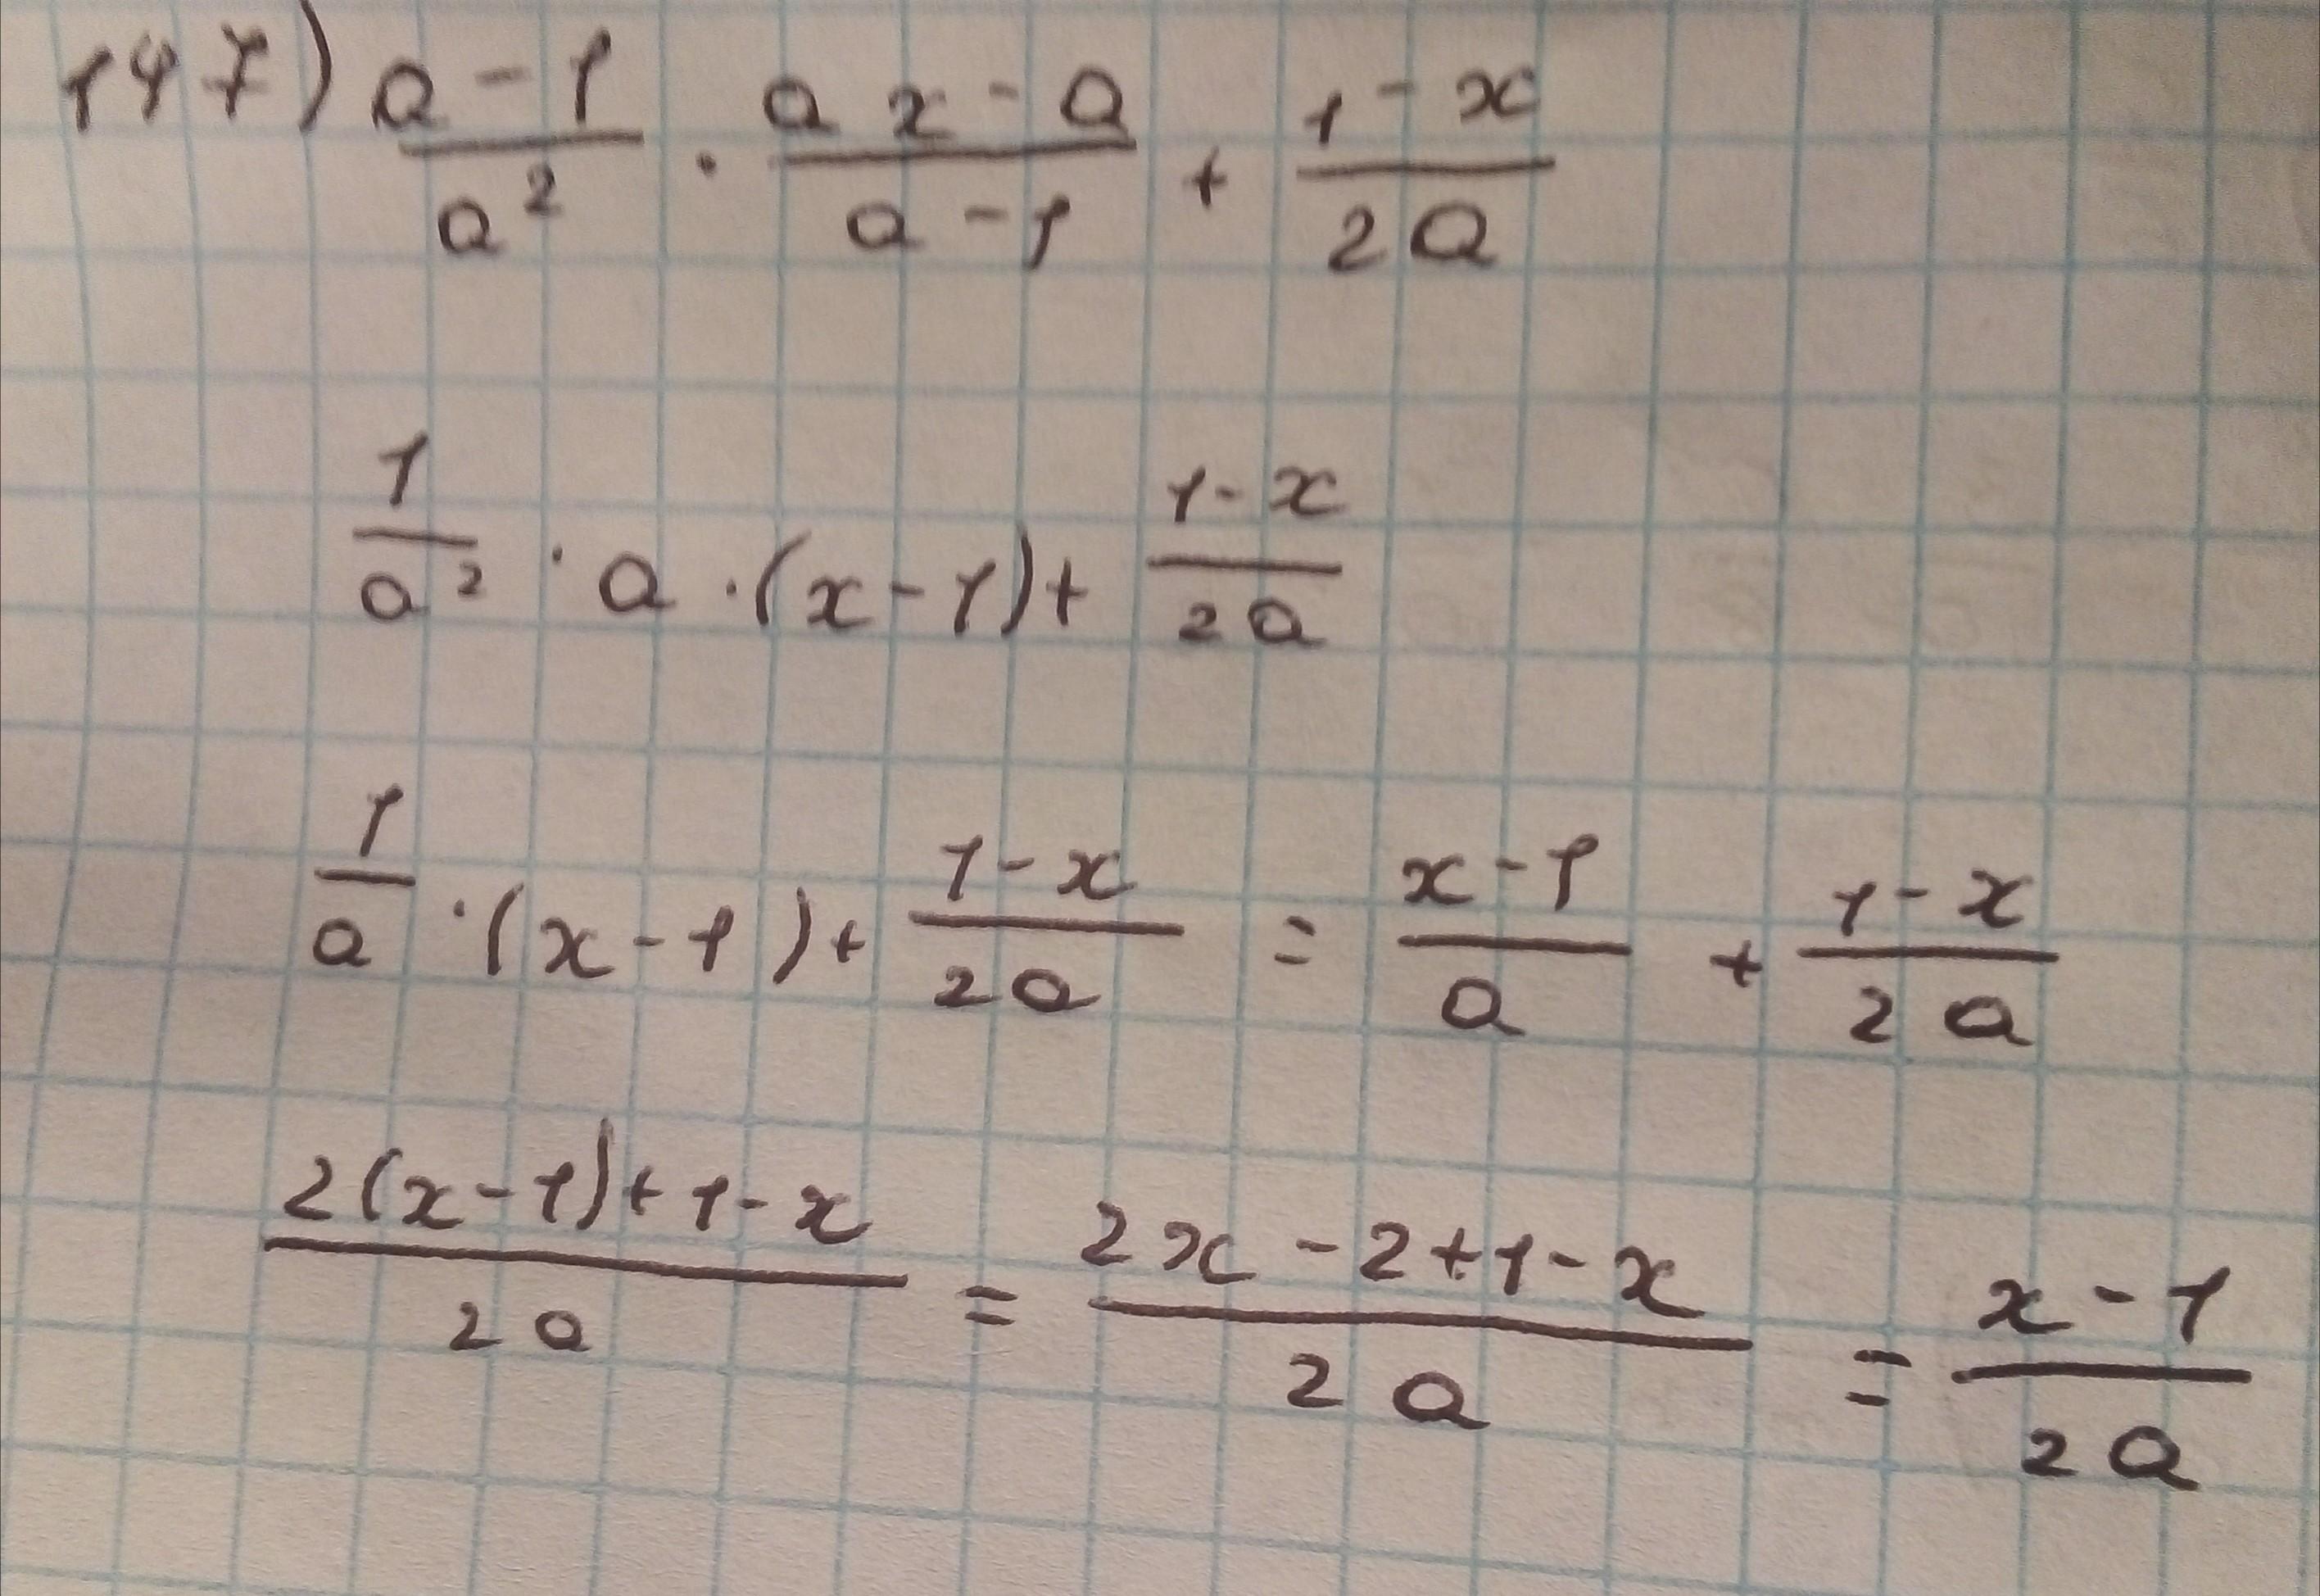 147) (a-1)/a² · (ax-a)/(a-1) + (1-x)/(2a)
1/a² · a · (x-1) + (1-x)/(2a)
1/a · (x-1) + (1-x)/(2a) = (x-1)/a + (1-x)/(2a)
(2(x-1)+1-x)/(2a) = (2x-2+1-x)/(2a) = (x-1)/(2a)